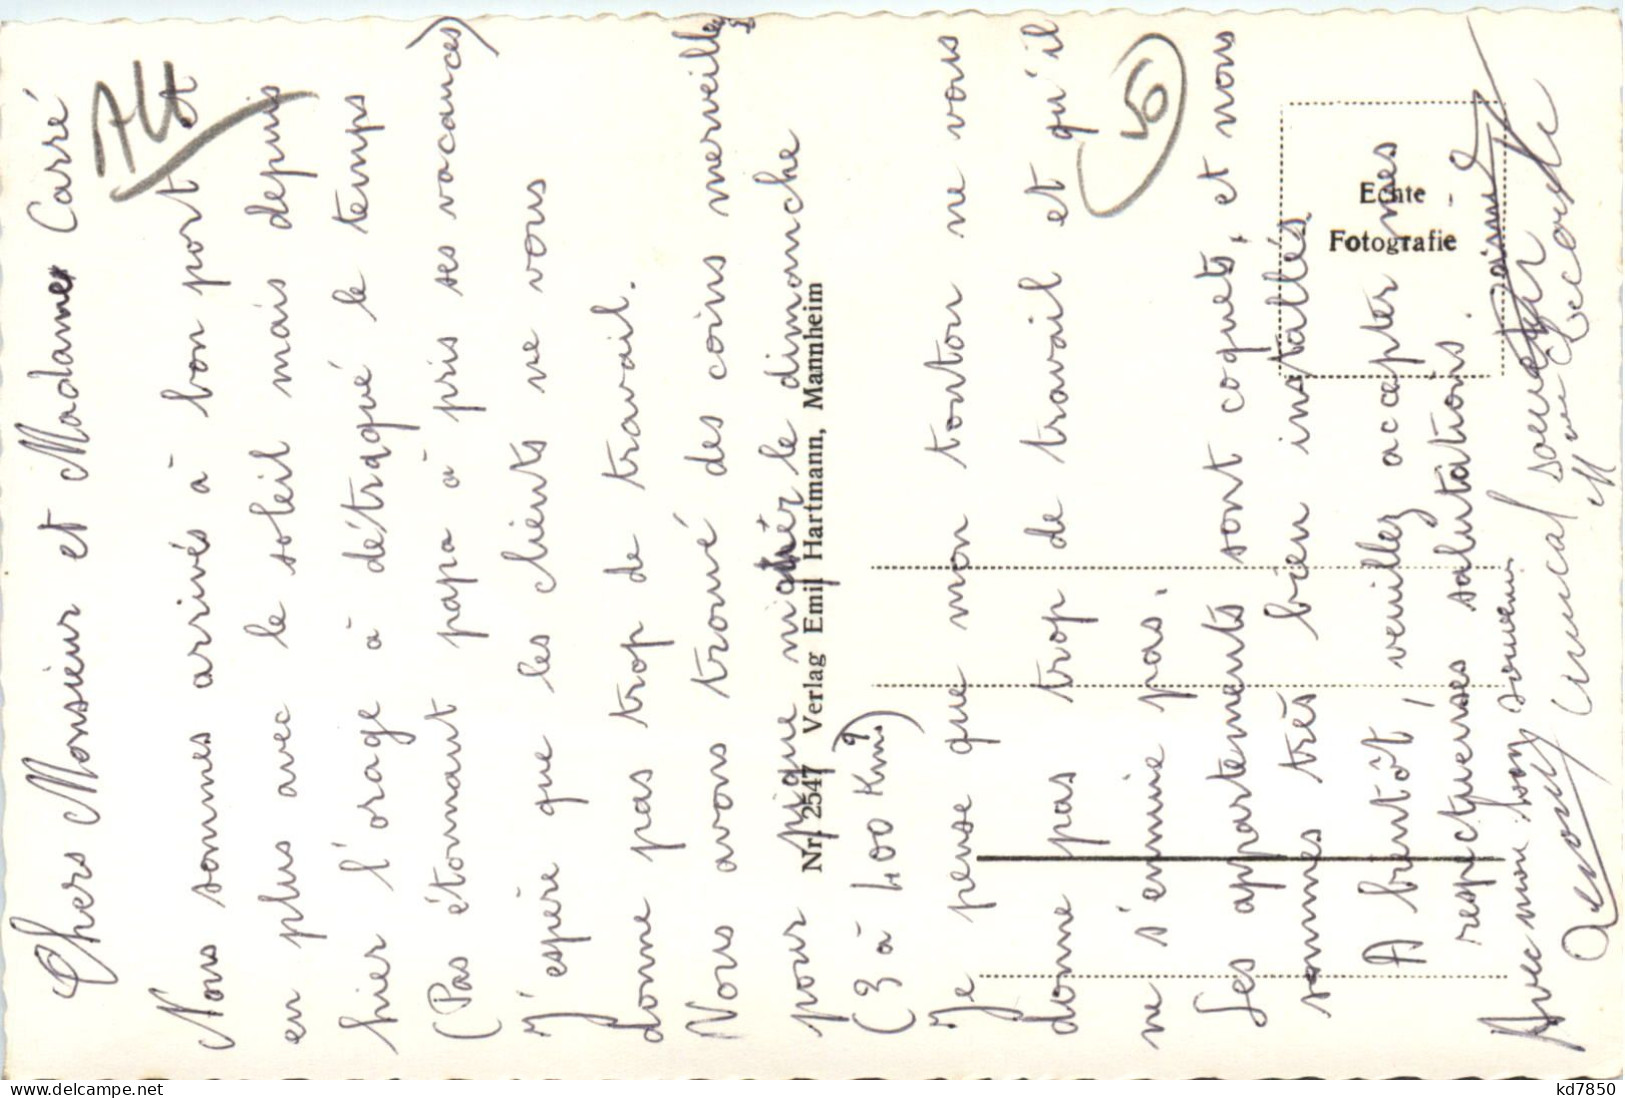 Chers Monsieur et Madame Carré
Nous sommes arrivés à bon port et
en plus avec le soleil mais depuis
hier l'orage à détraqué le temps
(Pas étonnant papa à pris ses vacances)
J'espère que les clients ne vous
donne pas trop de travail.
Nous avons trouvé des coins merveilleux
pour pique niquer le dimanche
(3 à 400 Kms)
Je pense que mon tonton ne vous
donne pas trop de travail et qu'il
ne s'ennuie pas.
Les appartements sont coquets, et nous
sommes très bien installés.
A bientôt, veuillez accepter mes
respectueuses salutations.
Avec mon bon souvenir
amical souvenir
Alt
50
Echte
Fotografie
Nr. 2547 Verlag Emil Hartmann, Mannheim
www.delcampe.net
kd7850